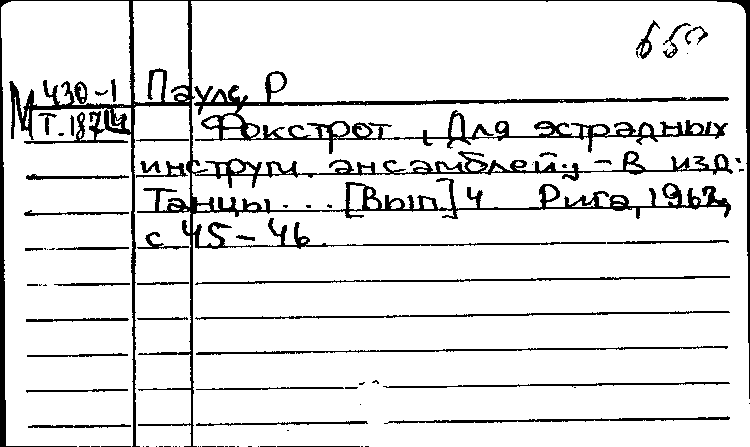 650
М 430-1 Паулс, Р
Т.187/4 Фокстрот. (Для эстрадных
инструм. ансамблей). - В изд:
Танцы... [Вып.] 4. Рига, 1962,
с 45-46.